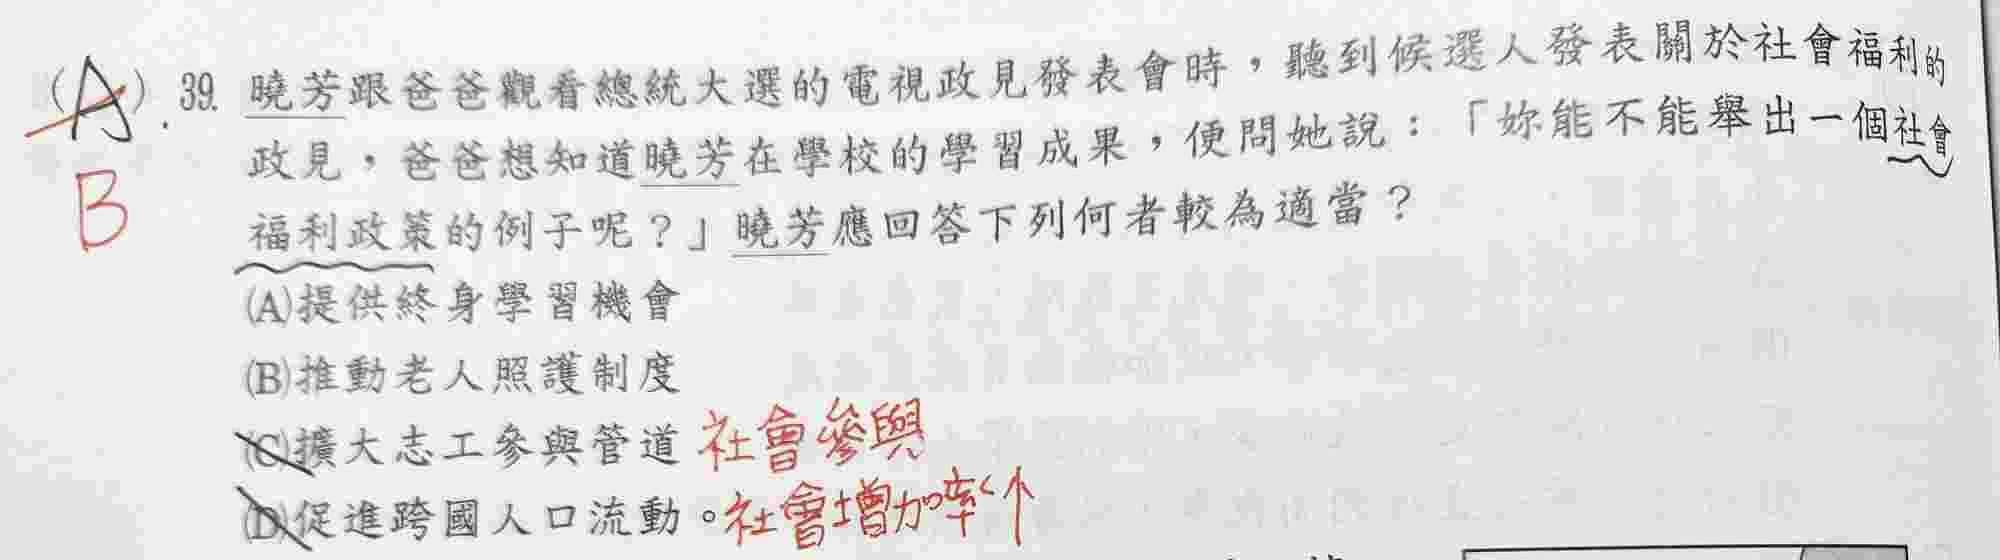 (A). 39. 曉芳跟爸爸觀看總統大選的電視政見發表會時，聽到候選人發表關於社會福利的
B
政見，爸爸想知道曉芳在學校的學習成果，便問她說：「妳能不能舉出一個社會
福利政策的例子呢？」曉芳應回答下列何者較為適當？
(A)提供終身學習機會
(B)推動老人照護制度
(C)擴大志工參與管道 社會參與
(D)促進跨國人口流動。社會增加率↑